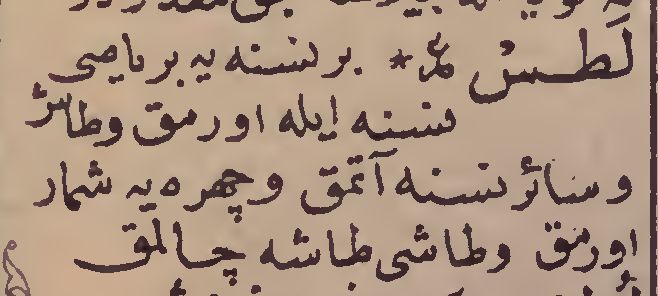 لَطْسْ ع * بر نسنه يه بر ياصى
نسنه ايله اورمق وطاش
وسائر نسنه آتمق وچهره يه شمار
اورمق وطاشى طاشه چالمق